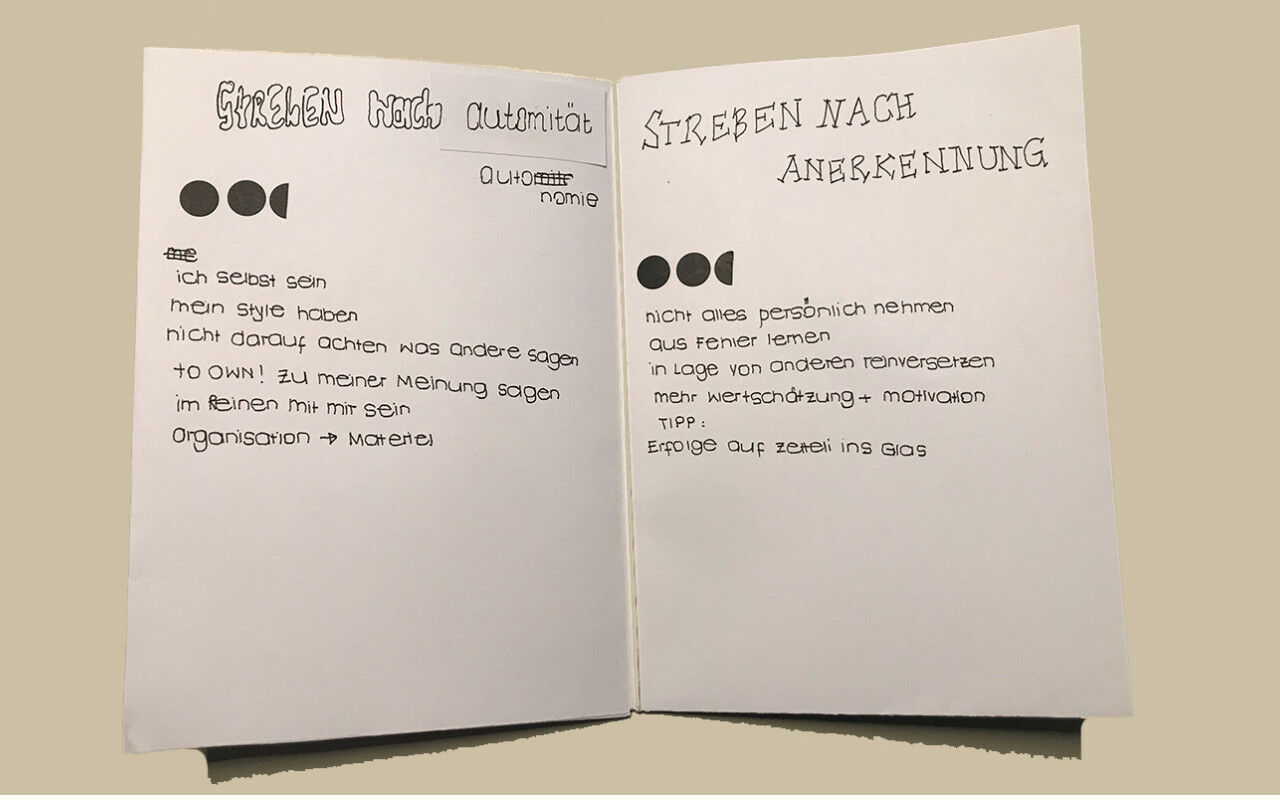 STREBEN Nach automität
automitr
nomie
me
ich selbst sein
mein style haben
nicht darauf achten was andere sagen
TO OWN! ZU meiner Meinung sagen
im Reinen mit mir sein
Organisation → Materiel
STREBEN NACH
ANERKENNUNG
nicht alles persönlich nehmen
aus Fehler lernen
in Lage von anderen reinversetzen
mehr wertschätzung + motivation
TIPP:
Erfolge auf zetteli ins Glas